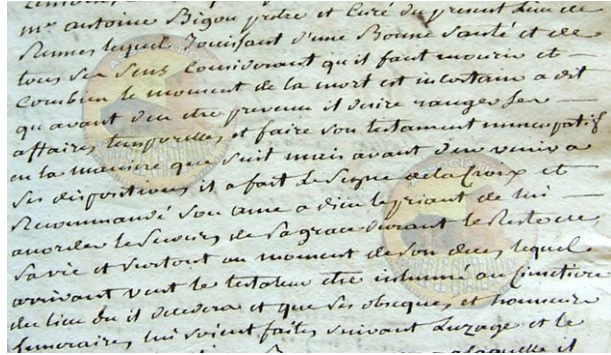 mr antoine Bigou prdre et Curé du present Lieu de
Rennes lequel Jouissant d'une Bonne Santé et de
tous Ses Sens Considerant qu'il faut mourir et
Combien le moment de la mort est incertain a dit
qu'avant d'en etre prevenu il desire ranger Ses
affaires temporelles et faire son testament nuncupatif
en la maniere que Suit mais avant d'en venir a
Ses dispositions, il a fait le Signe de la Croix et
Recommandé Son ame a dieu le priant de lui
acorder le Secours de Sa grace durant le Reste de
Sa vie et Surtout au moment de Son deces lequel
arrivant veut le testateur etre inhumé au Cimetiere
du lieu ou il decedera et que Ses obseques et honneurs
funeraires lui soient faites suivant Luzage et le
laquelle il